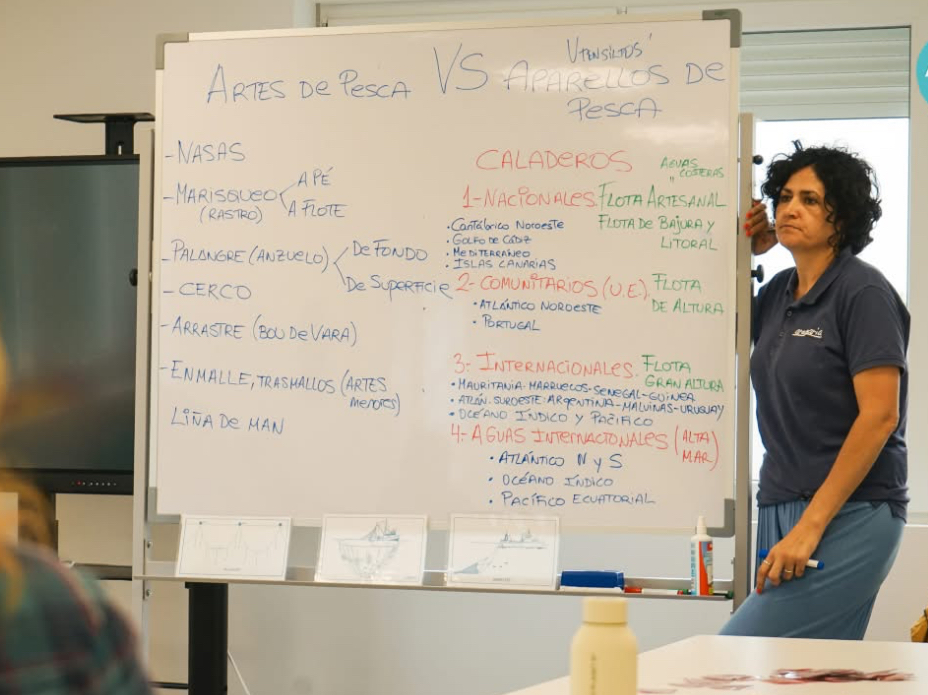 ARTES DE PESCA VS UTENSILIOS'
APARELLOS DE
PESCA
- NASAS
- MARISQUEO A PÉ
(RASTRO) A FLOTE
- PALANGRE (ANZUELO) DE FONDO
DE SUPERFICIE
- CERCO
- ARRASTRE (BOU DE VARA)
- ENMALLE, TRASMALLOS (ARTES
MENORES)
LIÑA DE MAN
CALADEROS AGUAS
" COSTERAS
1- NACIONALES. FLOTA ARTESANAL
FLOTA DE BAJURA Y
LITORAL
• Cantábrico Noroeste
• GOLFO DE CÁDIZ
• MEDITERRÁNEO
• ISLAS CANARIAS
2- COMUNITARIOS (U.E.). FLOTA
DE ALTURA
• ATLÁNTICO NOROESTE
• PORTUGAL
3- INTERNACIONALES. FLOTA
GRAN ALTURA
• MAURITANIA-MARRUECOS-SENEGAL-GUINEA
• ATLÁN. SUROESTE: ARGENTINA-MALVINAS-URUGUAY
• OCÉANO ÍNDICO Y PACÍFICO
4- AGUAS INTERNACIONALES (ALTA
MAR)
• ATLÁNTICO N y S
• OCÉANO ÍNDICO
• PACÍFICO ECUATORIAL